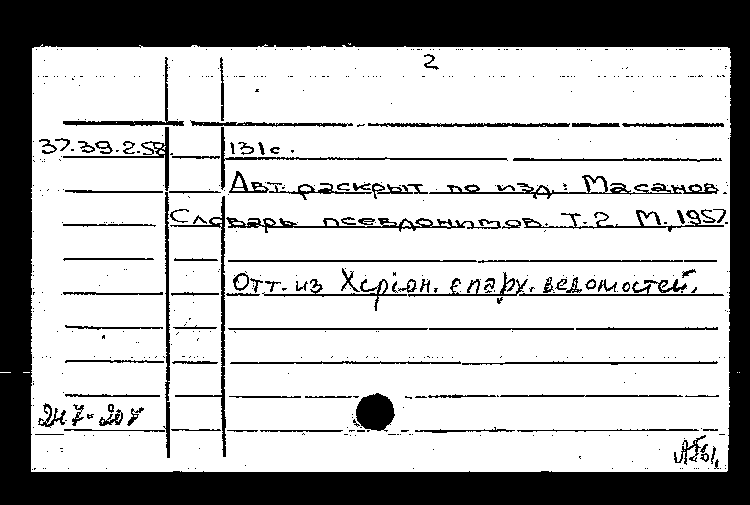 2
37.39.2.58 131 с.
Авт. раскрыт по изд.: Масанов.
Словарь псевдонимов. Т.2. М., 1957.
Отт. из Херсон. епарх. ведомостей.